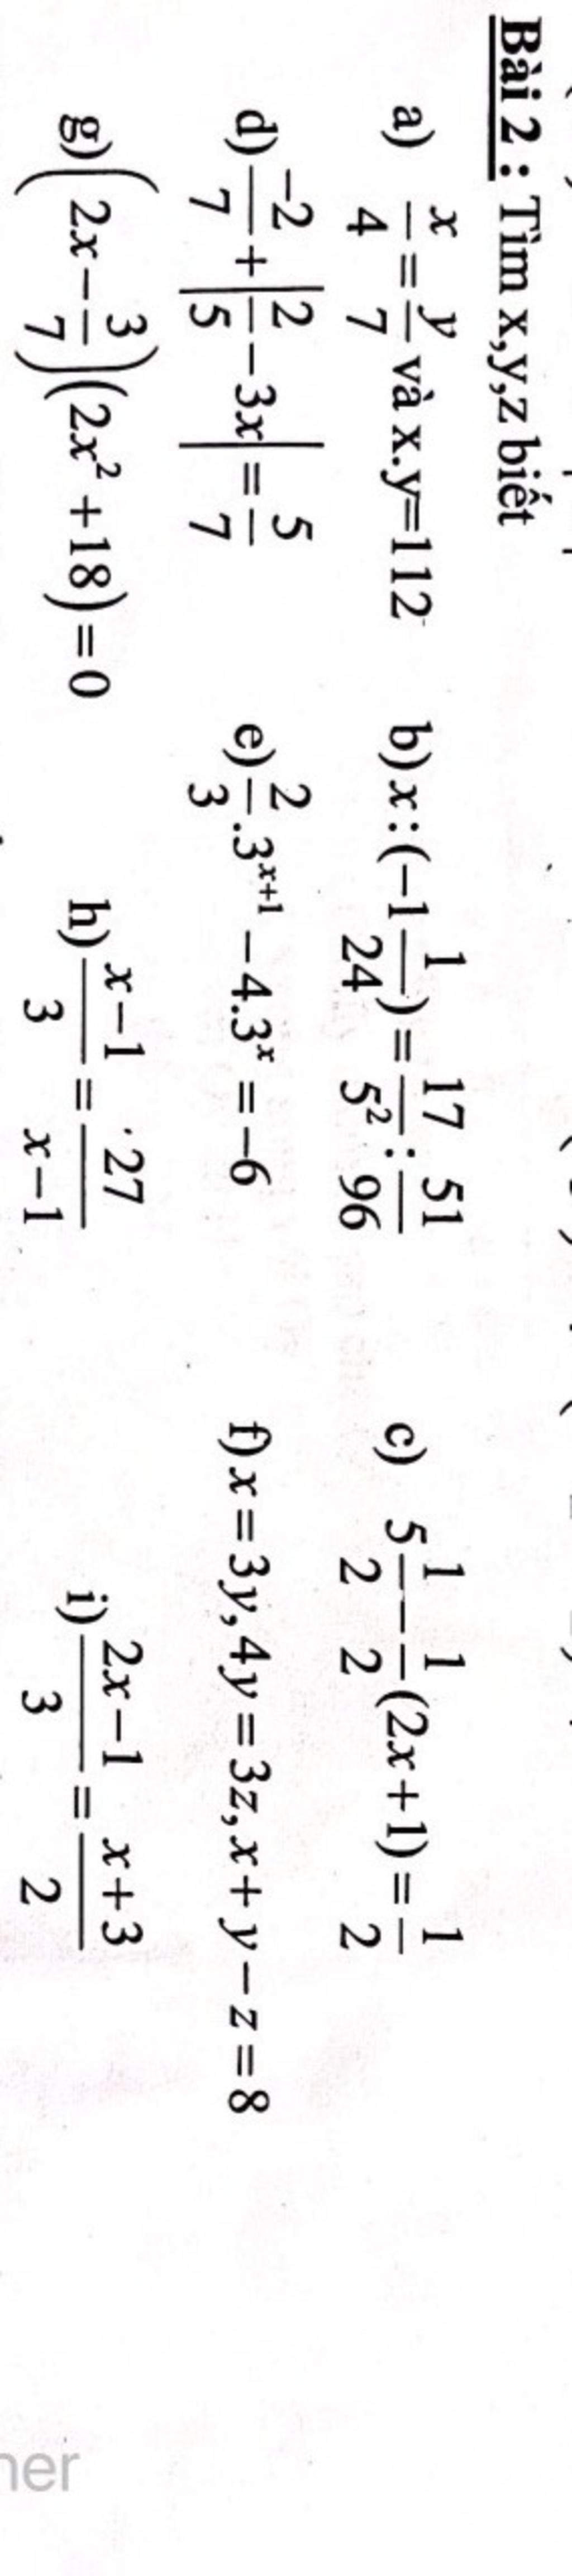 Bài 2 : Tìm x,y,z biết
a) x/4 = y/7 và x.y=112 b) x:(-1 1/24) = 17/5² : 51/96 c) 5 1/2 - 1/2 (2x+1) = 1/2
d) -2/7 + |2/5 - 3x| = 5/7 e) 2/3 .3^(x+1) - 4.3^x = -6 f) x = 3y, 4y = 3z, x + y - z = 8
g) (2x - 3/7)(2x² + 18) = 0 h) (x-1)/3 = 27/(x-1) i) (2x-1)/3 = (x+3)/2